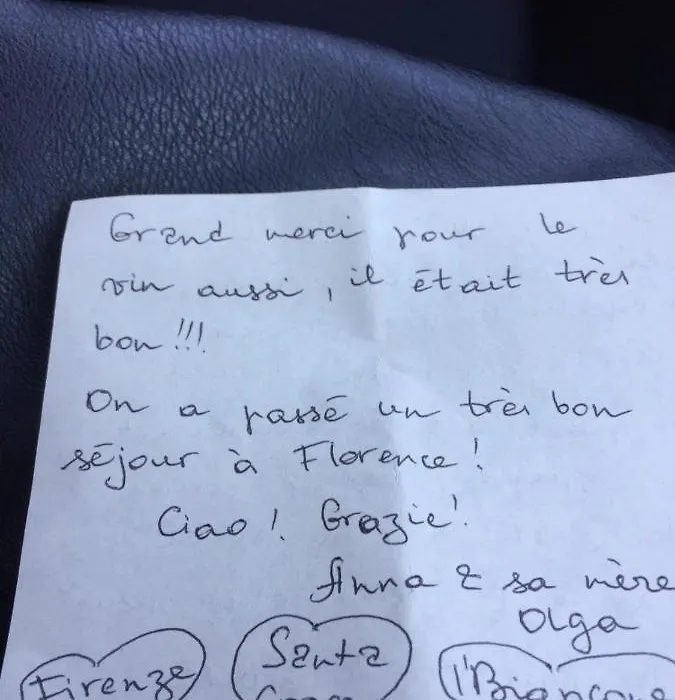 Grand merci pour le
vin aussi, il était très
bon!!!
On a passé un très bon
séjour à Florence!
Ciao! Grazie!
Anna & sa mère
Olga
Firenze
Santa
l'Biancone